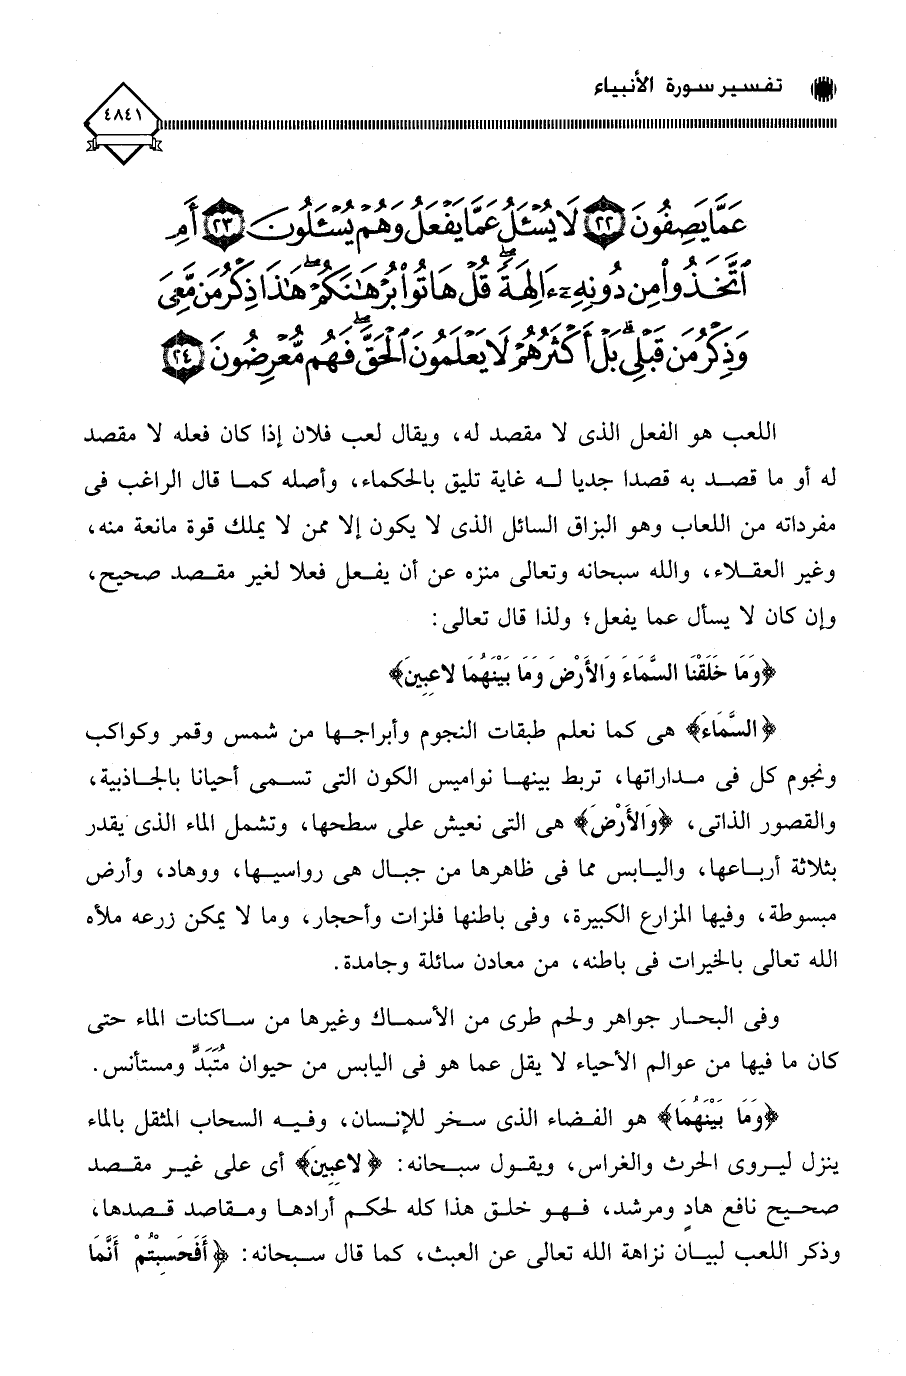 تفسير سورة الأنبياء
٤٨٤١
عَمَّا يَصِفُونَ ٢٢ لَا يُسْـَٔلُ عَمَّا يَفْعَلُ وَهُمْ يُسْـَٔلُونَ ٢٣ أَمِ
ٱتَّخَذُوا۟ مِن دُونِهِۦٓ ءَالِهَةً ۖ قُلْ هَاتُوا۟ بُرْهَـٰنَكُمْ ۖ هَـٰذَا ذِكْرُ مَن مَّعِىَ
وَذِكْرُ مَن قَبْلِى ۗ بَلْ أَكْثَرُهُمْ لَا يَعْلَمُونَ ٱلْحَقَّ ۖ فَهُم مُّعْرِضُونَ ٢٤
اللعب هو الفعل الذى لا مقصد له، ويقال لعب فلان إذا كان فعله لا مقصد
له أو ما قصد به قصدا جديا له غاية تليق بالحكماء، وأصله كما قال الراغب فى
مفرداته من اللعاب وهو البزاق السائل الذى لا يكون إلا ممن لا يملك قوة مانعة منه،
وغير العقلاء، والله سبحانه وتعالى منزه عن أن يفعل فعلا لغير مقصد صحيح،
وإن كان لا يسأل عما يفعل؛ ولذا قال تعالى:
﴿وَمَا خَلَقْنَا السَّمَاءَ وَالأَرْضَ وَمَا بَيْنَهُمَا لاعِبِينَ﴾
﴿السَّمَاءَ﴾ هى كما نعلم طبقات النجوم وأبراجها من شمس وقمر وكواكب
ونجوم كل فى مداراتها، تربط بينها نواميس الكون التى تسمى أحيانا بالجاذبية،
والقصور الذاتى، ﴿وَالأَرْضَ﴾ هى التى نعيش على سطحها، وتشمل الماء الذى يقدر
بثلاثة أرباعها، واليابس مما فى ظاهرها من جبال هى رواسيها، ووهاد، وأرض
مبسوطة، وفيها المزارع الكبيرة، وفى باطنها فلزات وأحجار، وما لا يمكن زرعه ملأه
الله تعالى بالخيرات فى باطنه، من معادن سائلة وجامدة.
وفى البحار جواهر ولحم طرى من الأسماك وغيرها من ساكنات الماء حتى
كان ما فيها من عوالم الأحياء لا يقل عما هو فى اليابس من حيوان مُتَبَدٍّ ومستأنس.
﴿وَمَا بَيْنَهُمَا﴾ هو الفضاء الذى سخر للإنسان، وفيه السحاب المثقل بالماء
ينزل ليروى الحرث والغراس، ويقول سبحانه: ﴿لاعِبِينَ﴾ أى على غير مقصد
صحيح نافع هادٍ ومرشد، فهو خلق هذا كله لحكم أرادها ومقاصد قصدها،
وذكر اللعب لبيان نزاهة الله تعالى عن العبث، كما قال سبحانه: ﴿أَفَحَسِبْتُمْ أَنَّمَا